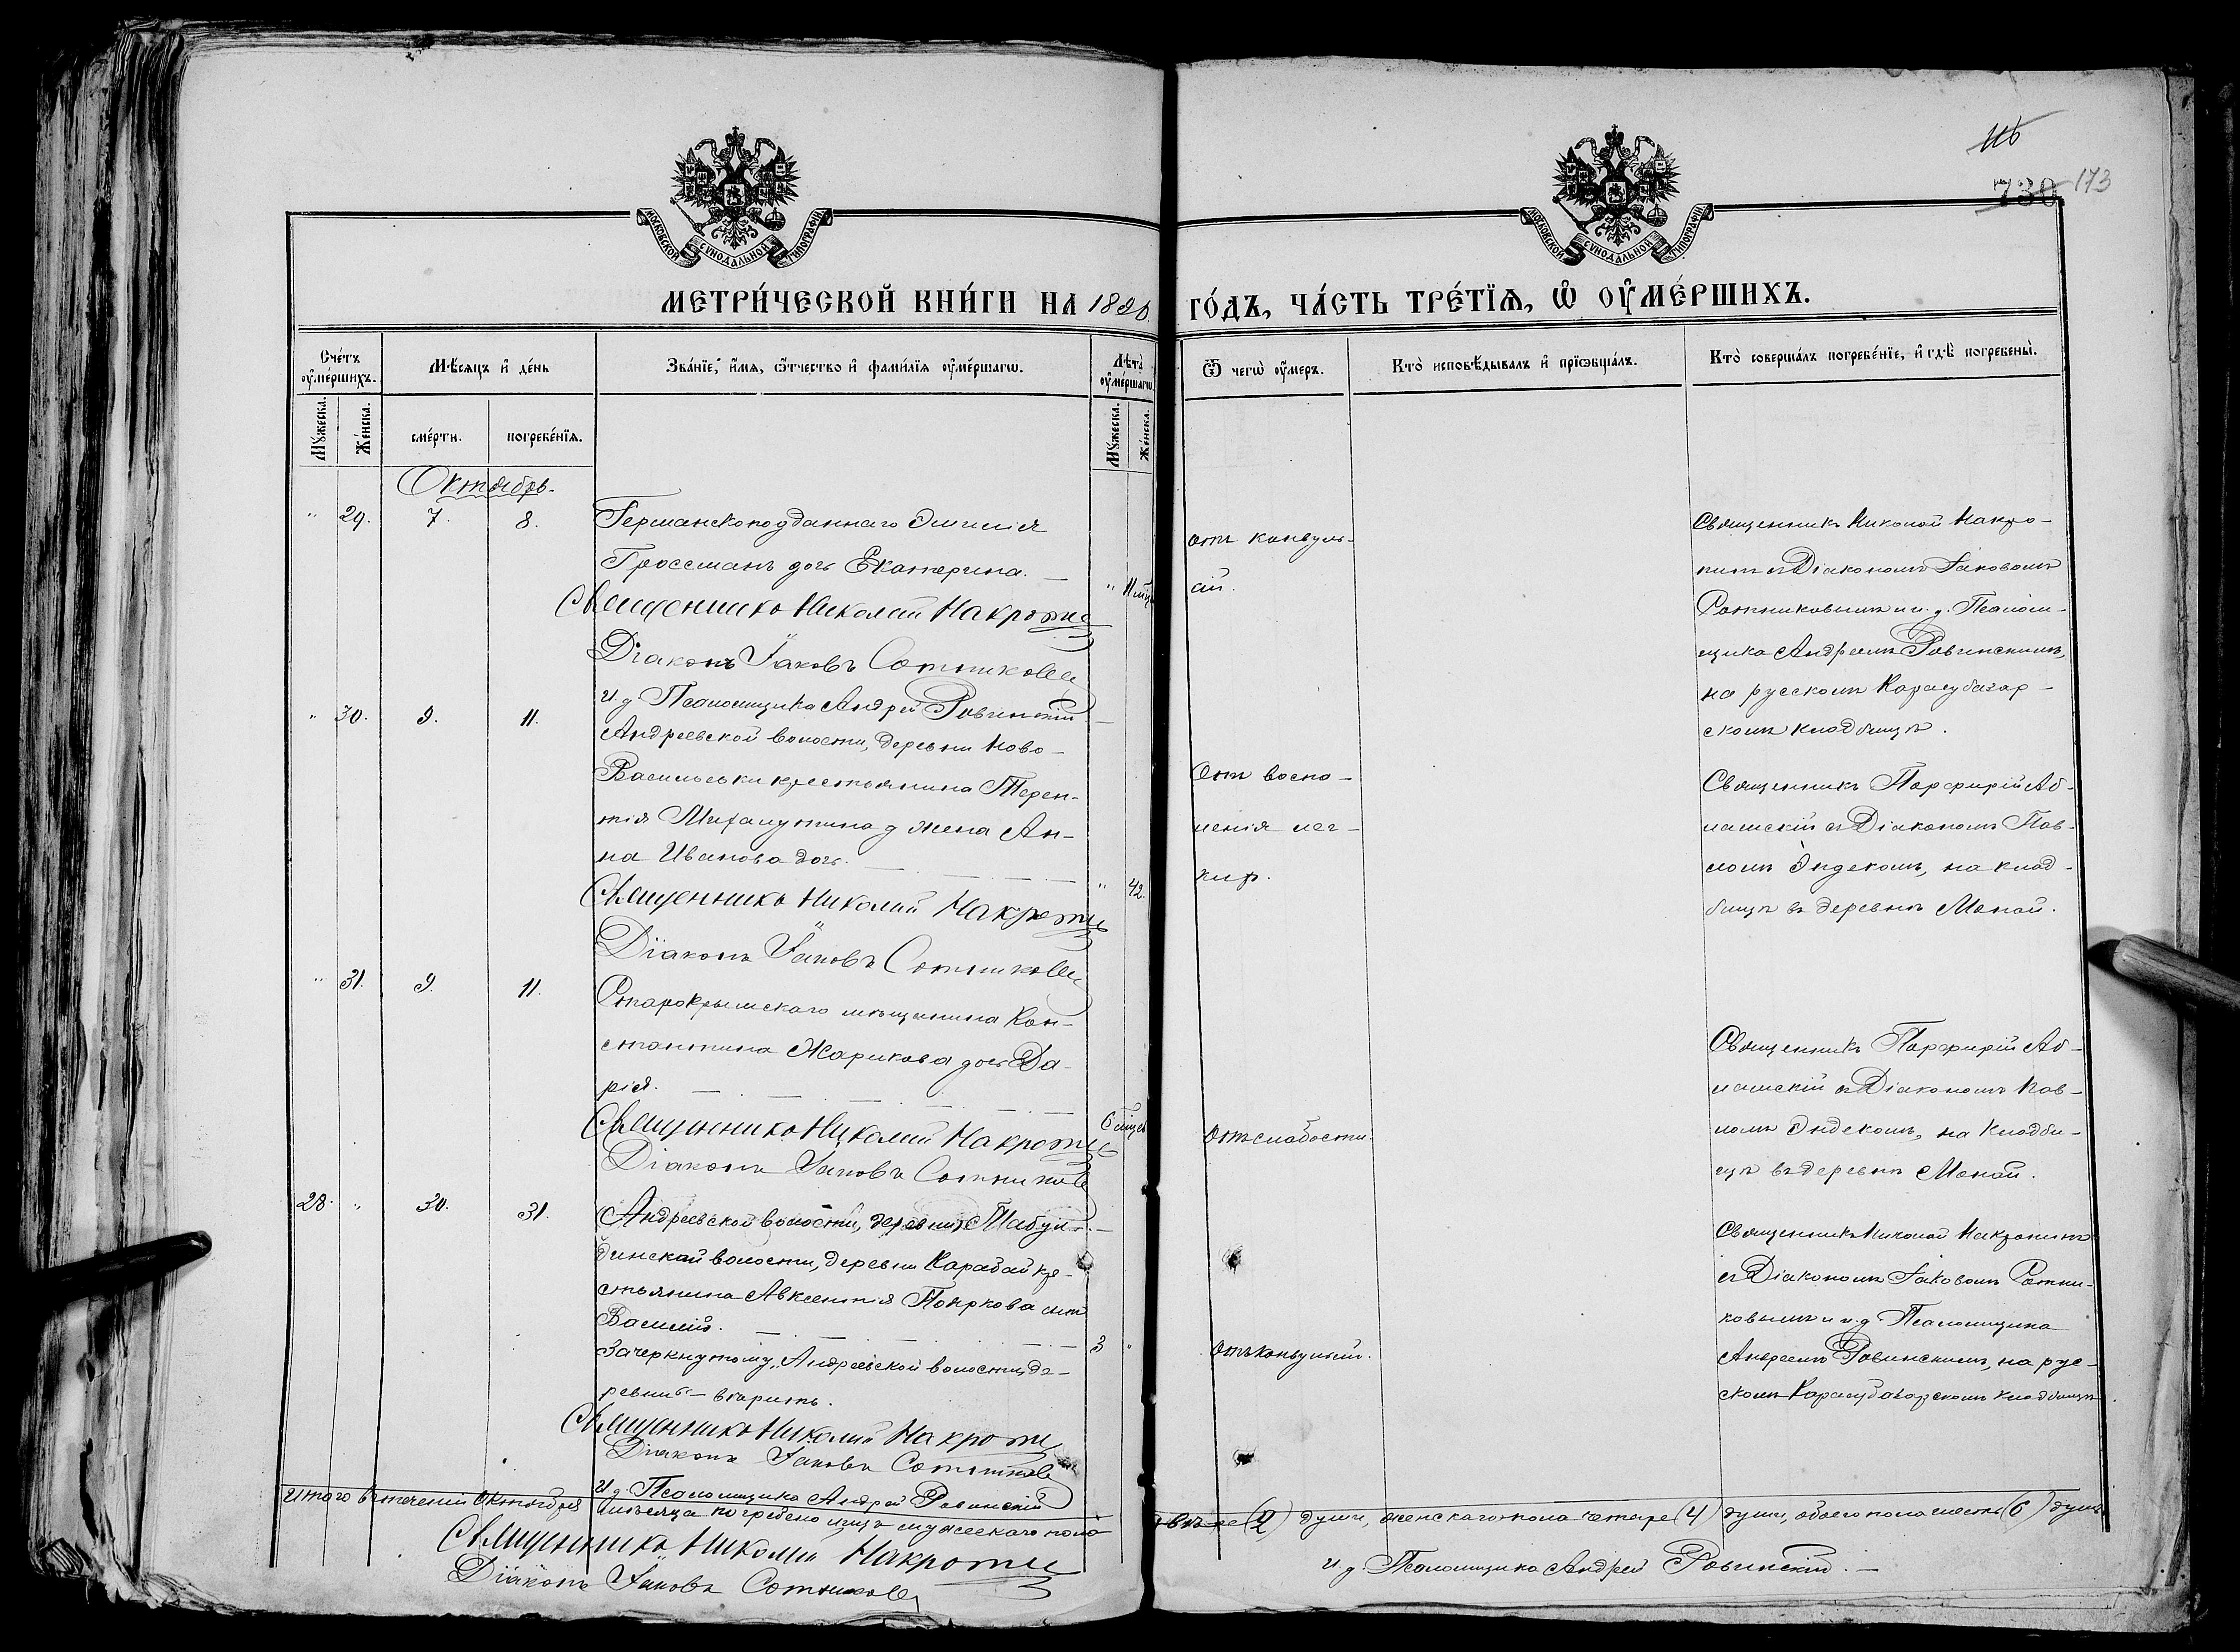 116
730 173
МОСКОВСКОЙ СѴНОДАЛЬНОЙ ТИПОГРАФІИ
МОСКОВСКОЙ СѴНОДАЛЬНОЙ ТИПОГРАФІИ
МЕТРИ́ЧЕСКОЙ КНИ́ГИ НА 1890.
ГО́ДЪ, ЧА́СТЬ ТРЕ́ТЇѦ, Ѡ҆ ОУ҆МЕ́РШИХЪ.
Сче́тъ оу҆ме́ршихъ.
Мѣ́сѧцъ и҆ де́нь
Зва́нїе, и҆́мѧ, ѻ҆́тчество и҆ фами́лїѧ оу҆ме́ршагѡ.
Лѣ́та оу҆ме́ршагѡ.
Ѿ чегѡ̀ оу҆́меръ.
Кто̀ и҆сповѣ́дывалъ и҆ прїѡбща́лъ.
Кто̀ соверша́лъ погребе́нїе, и҆ гдѣ̀ погребены̀.
Мꙋ́жеска.
Же́нска.
сме́рти.
погребе́нїѧ.
Мꙋ́жеска.
Же́нска.
Октябрь.
" 29. 7. 8.
Германскоподданнаго Эмилія
Гроссманъ дочь Екатерина. —
" 11 мцъ
Священникъ Николай Накропи
Діаконъ Іаковъ Сотниковъ
И д Псаломщика Андрей Ровинскій
отъ конвуль-
сій.
Священникъ Николай Накро-
пинъ съ Діакономъ Іаковомъ
Сотниковымъ и и. д. Псалом-
щика Андреемъ Ровинскимъ,
на русскомъ Карасубазар-
скомъ кладбищѣ.
" 30. 9. 11.
Андреевской волости, деревни Ново-
Васильевки крестьянина Терен-
тія жена Ан-
на Иванова дочь.
" 42.
Священникъ Николай Накропи
Діаконъ Іаковъ Сотниковъ
Отъ воспа-
ленія лег-
кихъ.
Священникъ Порфирій Аб-
ламскій съ Діакономъ Пав-
ломъ Эндекомъ, на клад-
бищѣ въ деревнѣ Монай.
" 31. 9. 11.
Старокрымскаго мѣщанина Кон-
стантина Жарикова дочь Да-
рія.
6 мцев
Священникъ Николай Накропи
Діаконъ Іаковъ Сотниковъ
Отъ слабости.
Священникъ Порфирій Аб-
ламскій съ Діакономъ Пав-
ломъ Эндекомъ, на кладби-
щѣ въ деревнѣ Монай.
28. " 30. 31.
Андреевской волости, деревни Табул-
динской волости, деревни Карабай кре-
стьянина Авксентія Пояркова сынъ
Василій.
3 "
Зачеркнутому „Андреевской волости, де-
ревни" — вѣрить.
Священникъ Николай Накропи
Діаконъ Іаковъ Сотниковъ
И д. Псаломщика Андрей Ровинскій
Отъ конвульсій.
Священникъ Николай Накропинъ
съ Діакономъ Іаковомъ Сотни-
ковымъ и и.д Псаломщика
Андреемъ Ровинскимъ, на рус-
скомъ Карасубазарскомъ кладбищѣ.
Итого въ теченіи Октября мѣсяца погребено лицъ мужескаго пола
двѣ (2) души, женскаго пола четыре (4) души, обоего пола шесть (6) душъ
Священникъ Николай Накропи
Діаконъ Іаковъ Сотниковъ
и д. Псаломщика Андрей Ровинскій. —